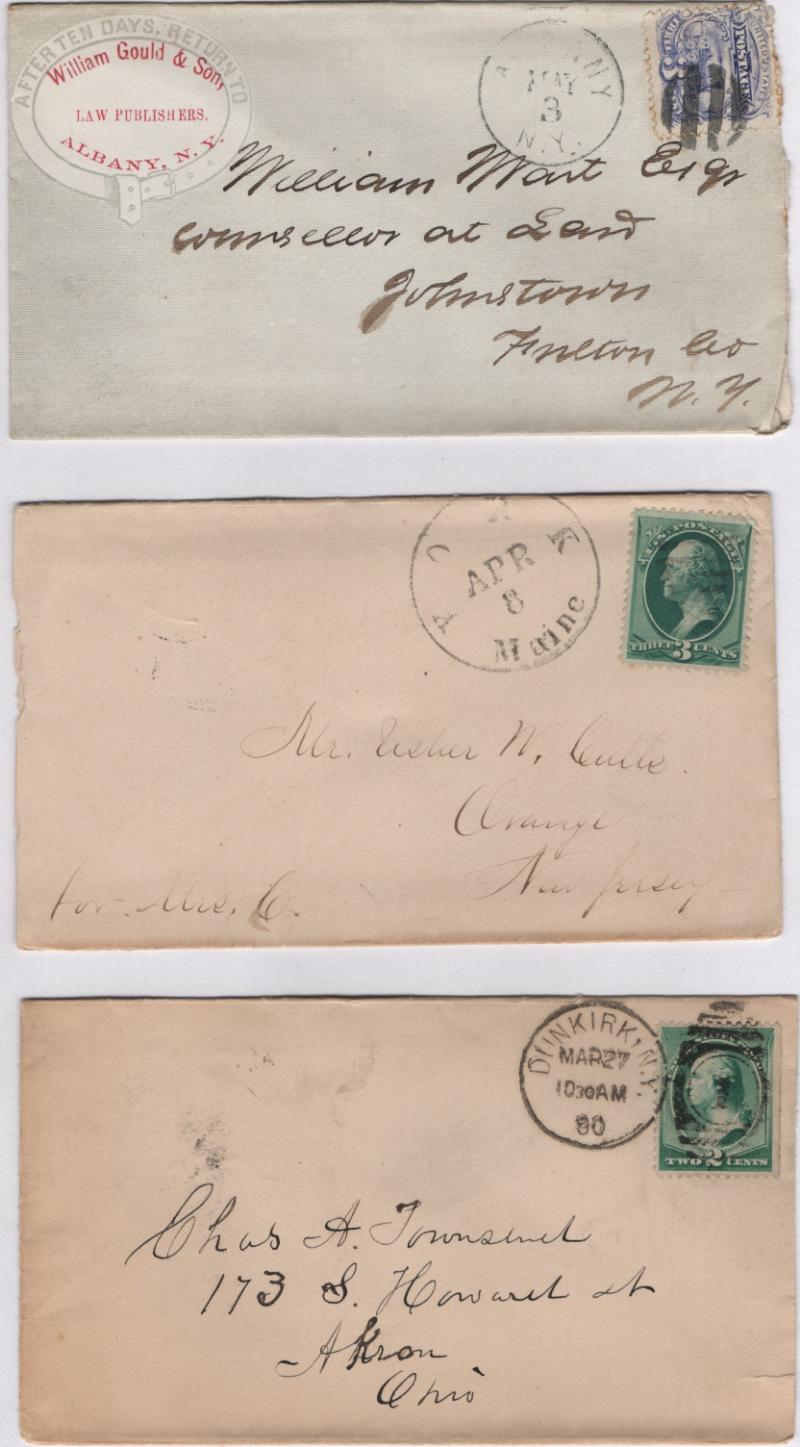 AFTER TEN DAYS, RETURN TO
William Gould & Son,
LAW PUBLISHERS.
ALBANY, N.Y.
ALBANY
MAY
3
N.Y.
UNITED STATES
POSTAGE
William Wait Esqr
Counsellor at Law
Johnstown
Fulton Co
N.Y.
YORK
APR
8
Maine
U.S. POSTAGE
THREE 3 CENTS
Mr. Usher W. Cutts.
Orange
New Jersey
for Mrs. C.
DUNKIRK, N.Y.
MAR 27
1030AM
90
1
TWO 2 CENTS
Chas A. Townsend
173 S. Howard st
Akron
Ohio